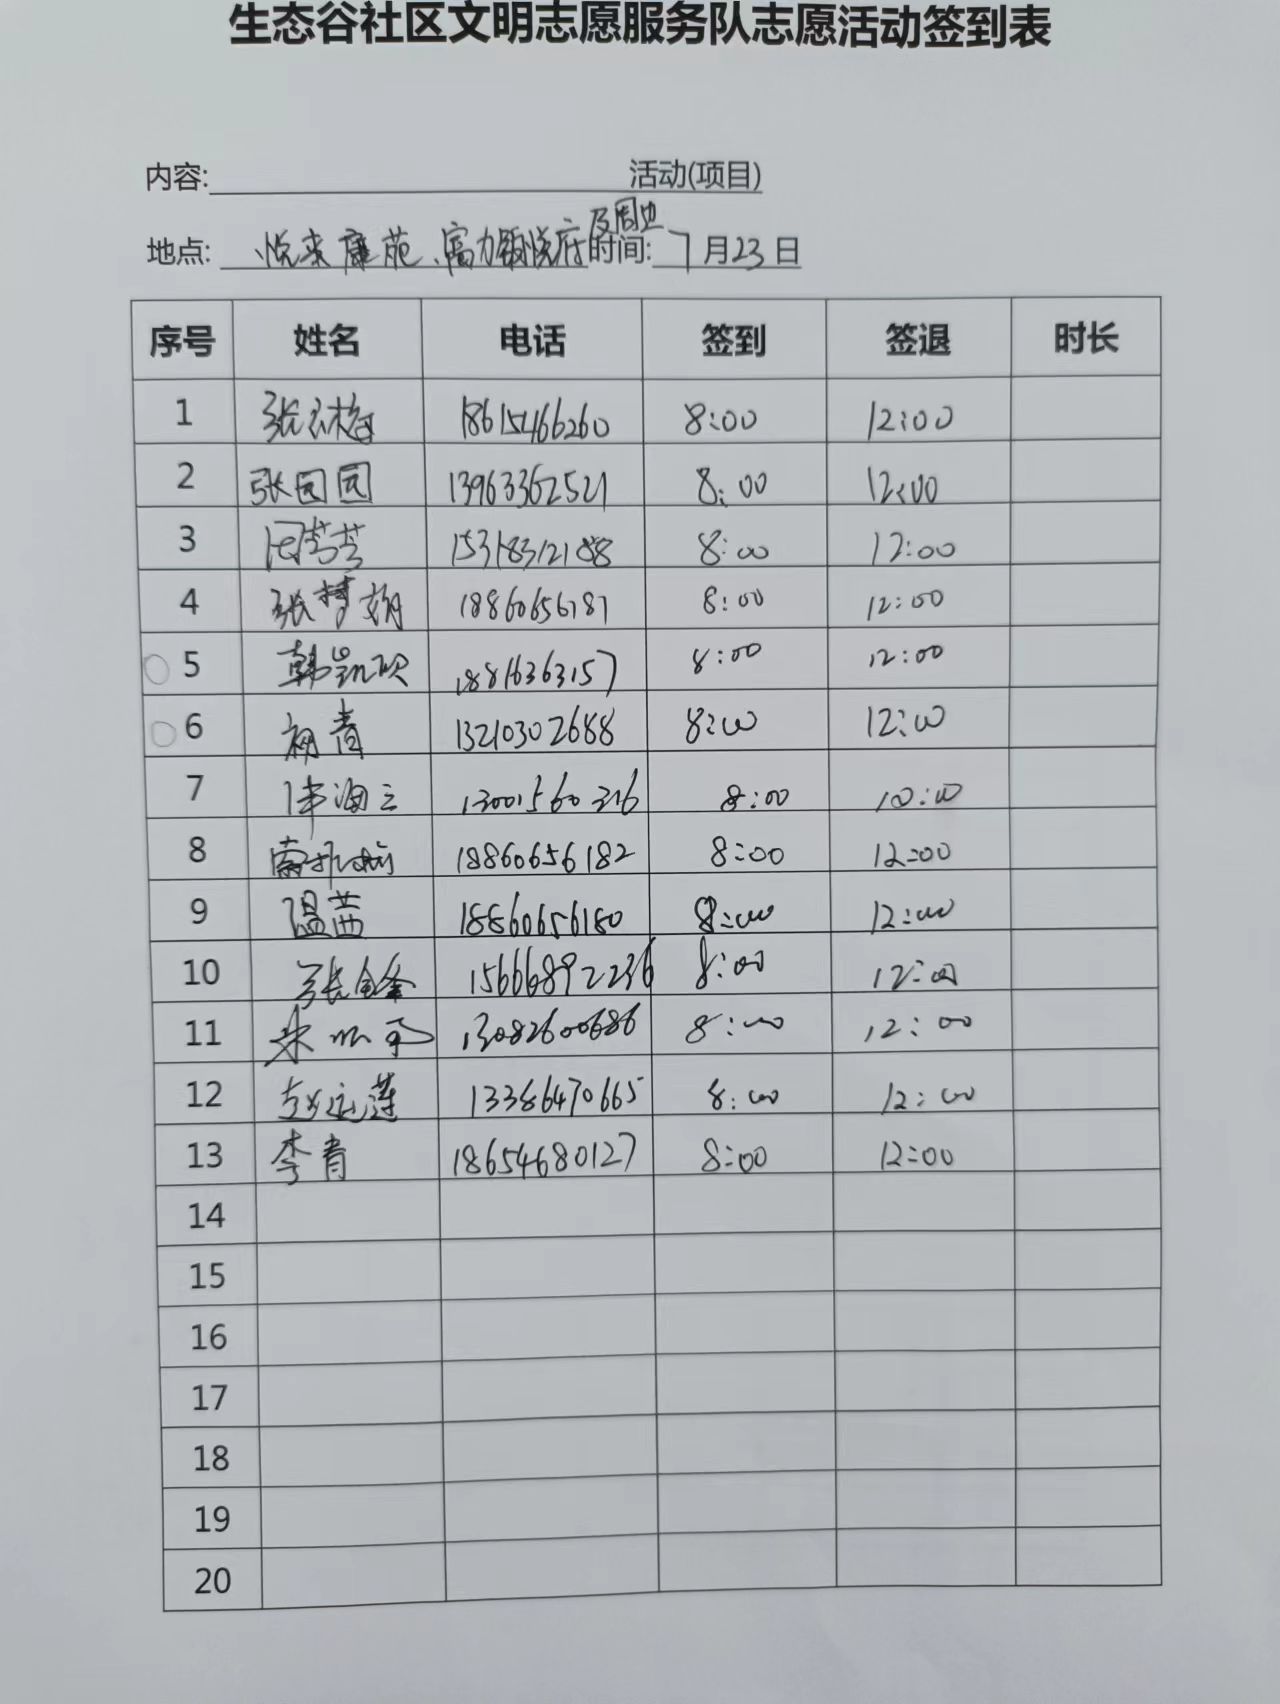 生态谷社区文明志愿服务队志愿活动签到表
内容: 活动(项目)
及周边
地点: 悦来康苑、富力锦悦府 时间: 7月23日
序号 姓名 电话 签到 签退 时长
1 18615466260 8:00 12:00
2 张园园 13963362521 8:00 12:00
3 15318312188 8:00 12:00
4 张梦娟 18860656187 8:00 12:00
5 韩凯硕 8:00 12:00
6 初青 13210302688 8:00 12:00
7 13001560326 8:00 10:00
8 18860656182 8:00 12:00
9 温茜 18860656180 8:00 12:00
10 张金峰 15666892236 8:00 12:00
11 13082600686 8:00 12:00
12 赵运莲 13386470665 8:00 12:00
13 李青 18654680127 8:00 12:00
14
15
16
17
18
19
20